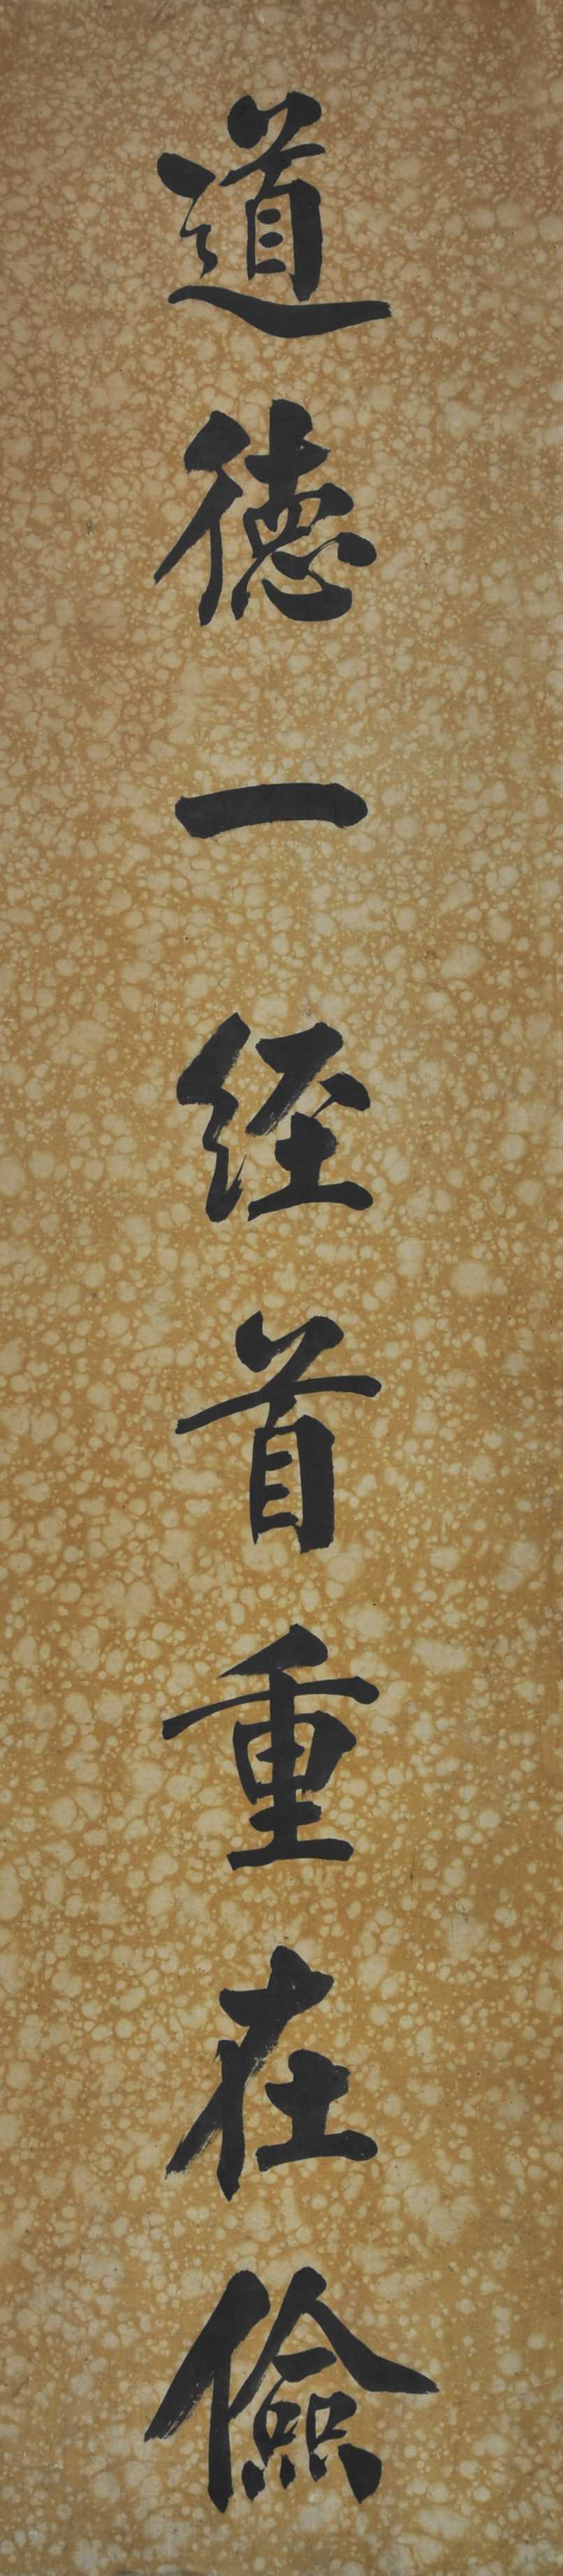 道德一经首重在儉